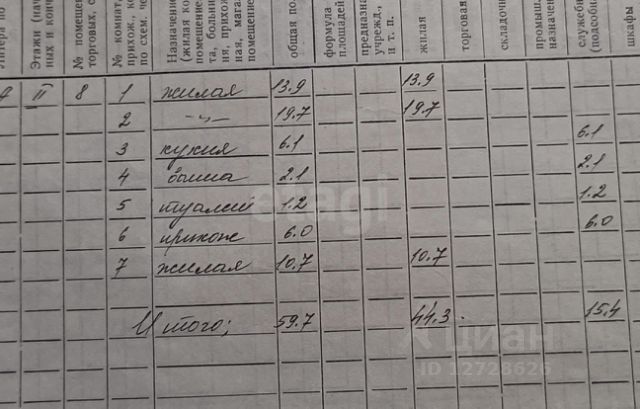 Литера по
Этажи (нач
ных и конч
№ помеще
торговых, с
№ комнат,
прихож., ко
по схем. че
Назначени
(жилая ко
помещение
та, больн
ния, прихож
ная, мага
помещение
общая по
формула
площадей
предназна
учрежд.,
и т. п.
жилая
торговая
складочн
промыш.
назначени
служебн
(подсобн
шкафы
II 8 1 жилая 13.9 13.9
2 —„— 19.7 19.7
3 кухня 6.1 6.1
4 ванна 2.1 2.1
5 туалет 1.2 1.2
6 прихож 6.0 6.0
7 жилая 10.7 10.7
Итого; 59.7 44.3. 15.4
etagi
циан
ID 12728626